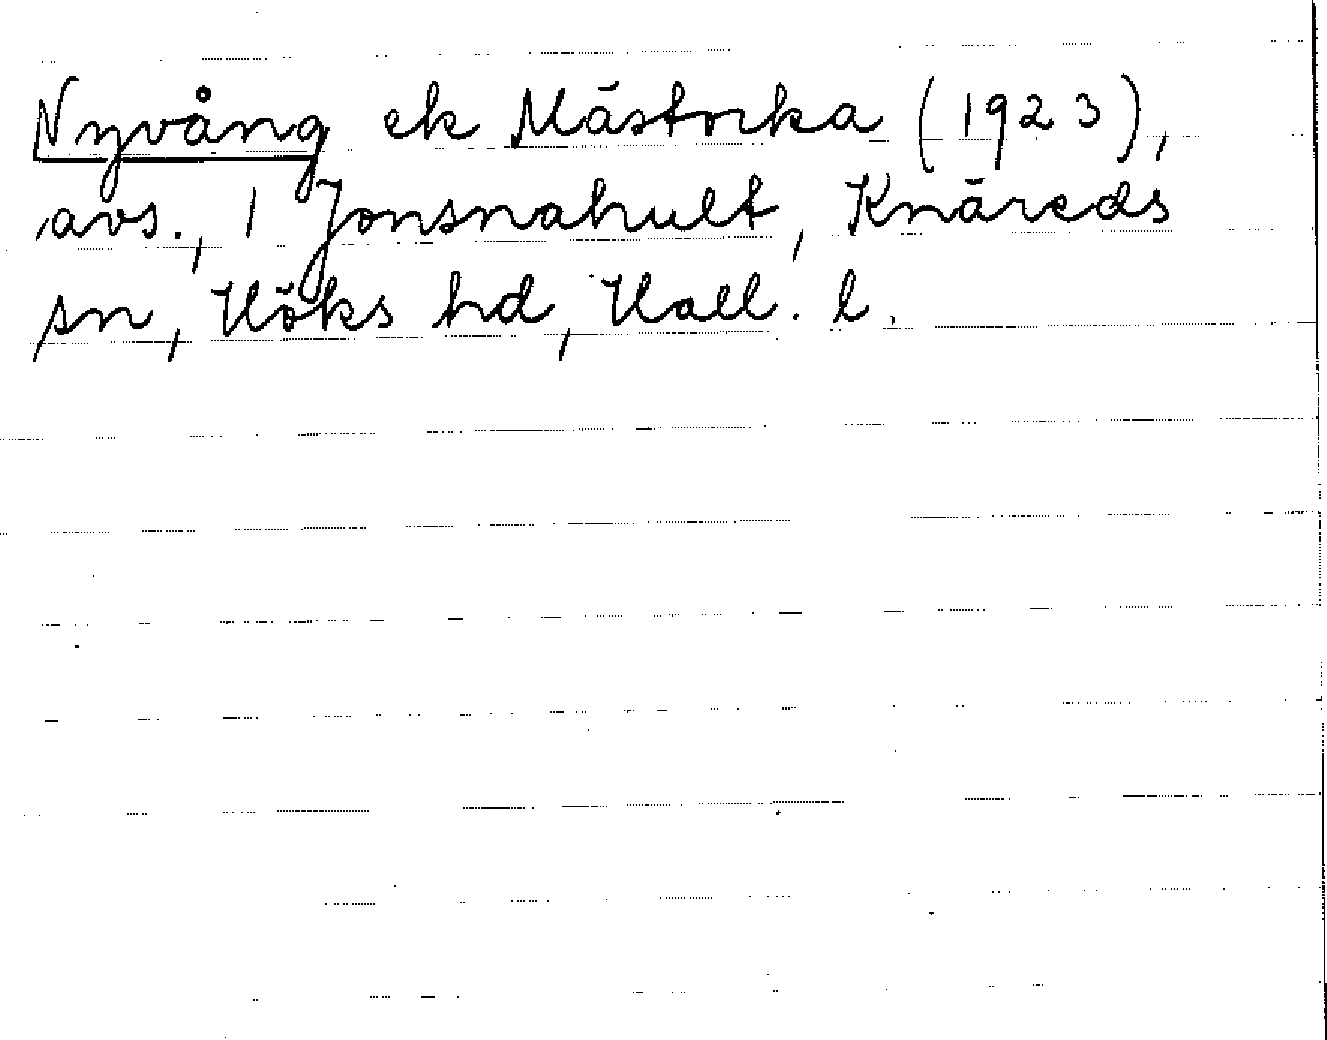 Nyvång ek Mästocka (1923),
avs., 1 Jonsnahult, Knäreds
sn, Höks hd, Hall. l.